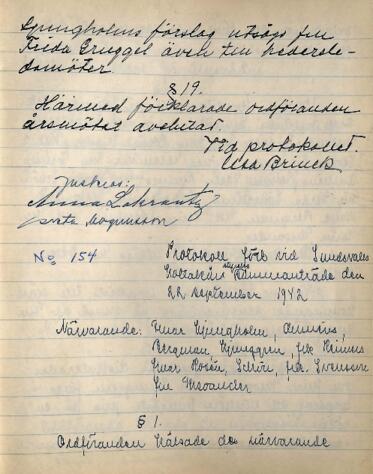 Ljungholms förslag utsågs fru
Frida Gruggel även till hedersle-
damöter.
§ 19.
Härmed förklarade ordföranden
årsmötet avslutat.
Vid protokollet.
Elsa Brinck
Justeras:
Anna Lokrantz
Greta Mogensson
No 154
Protokoll förb vid Sundsvalls
Lottakårs styrelse sammanträde den
22 september 1942
Närvarande: Fruar Ljungholm,
Bergman, Ljunggren, frk
Fruar Rosén, frk. Svensson
fru
§ 1.
Ordföranden hälsade de närvarande